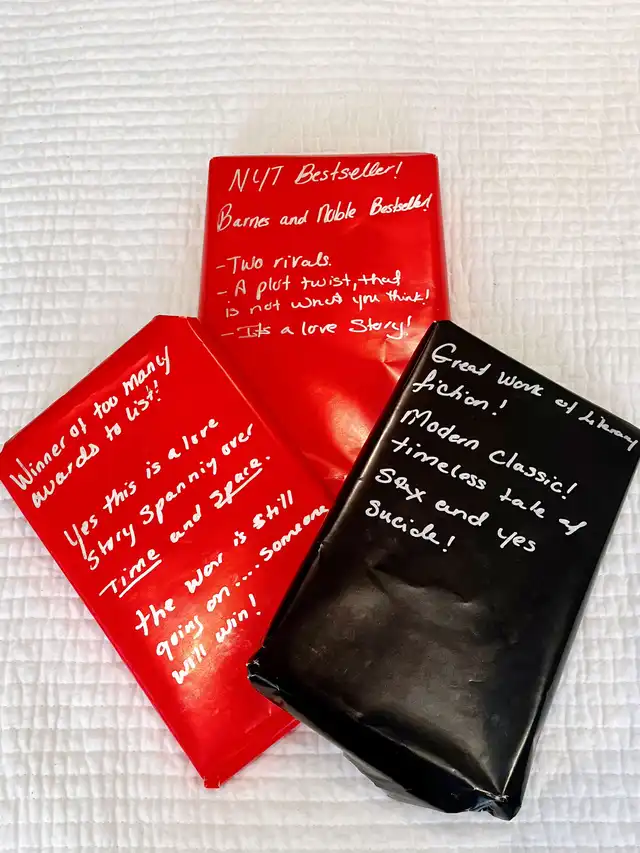 NYT Bestseller!
Barnes and Noble Bestseller!
- Two rivals.
- A plot twist, that
is not what you think!
- Its a love Story!
Winner of too many
awards to list!
Yes this is a love
Story Spanning over
Time and Space.
the war is still
going on .... Someone
will win!
Great work of Literary
fiction!
Modern Classic!
timeless tale of
Sex and yes
Suicide!